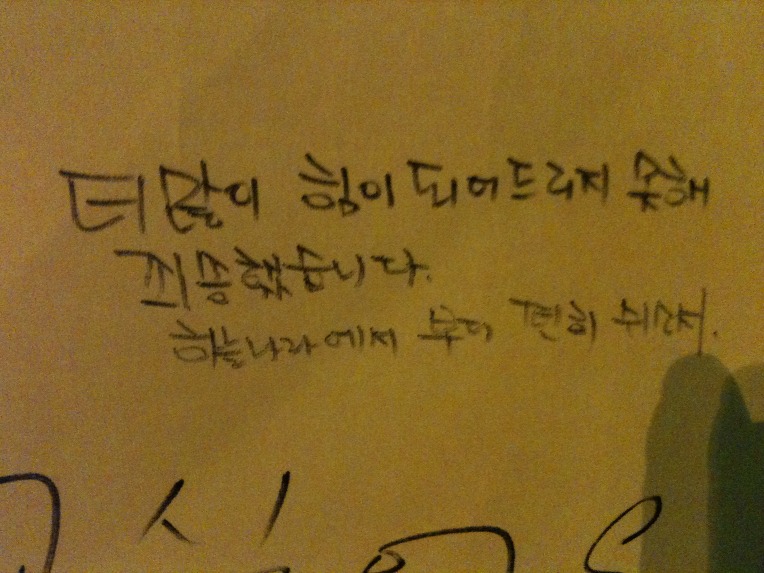 더 많이 힘이 되어드리지 못해
죄송했습니다.
하늘나라에서 부디 편히 쉬소서.